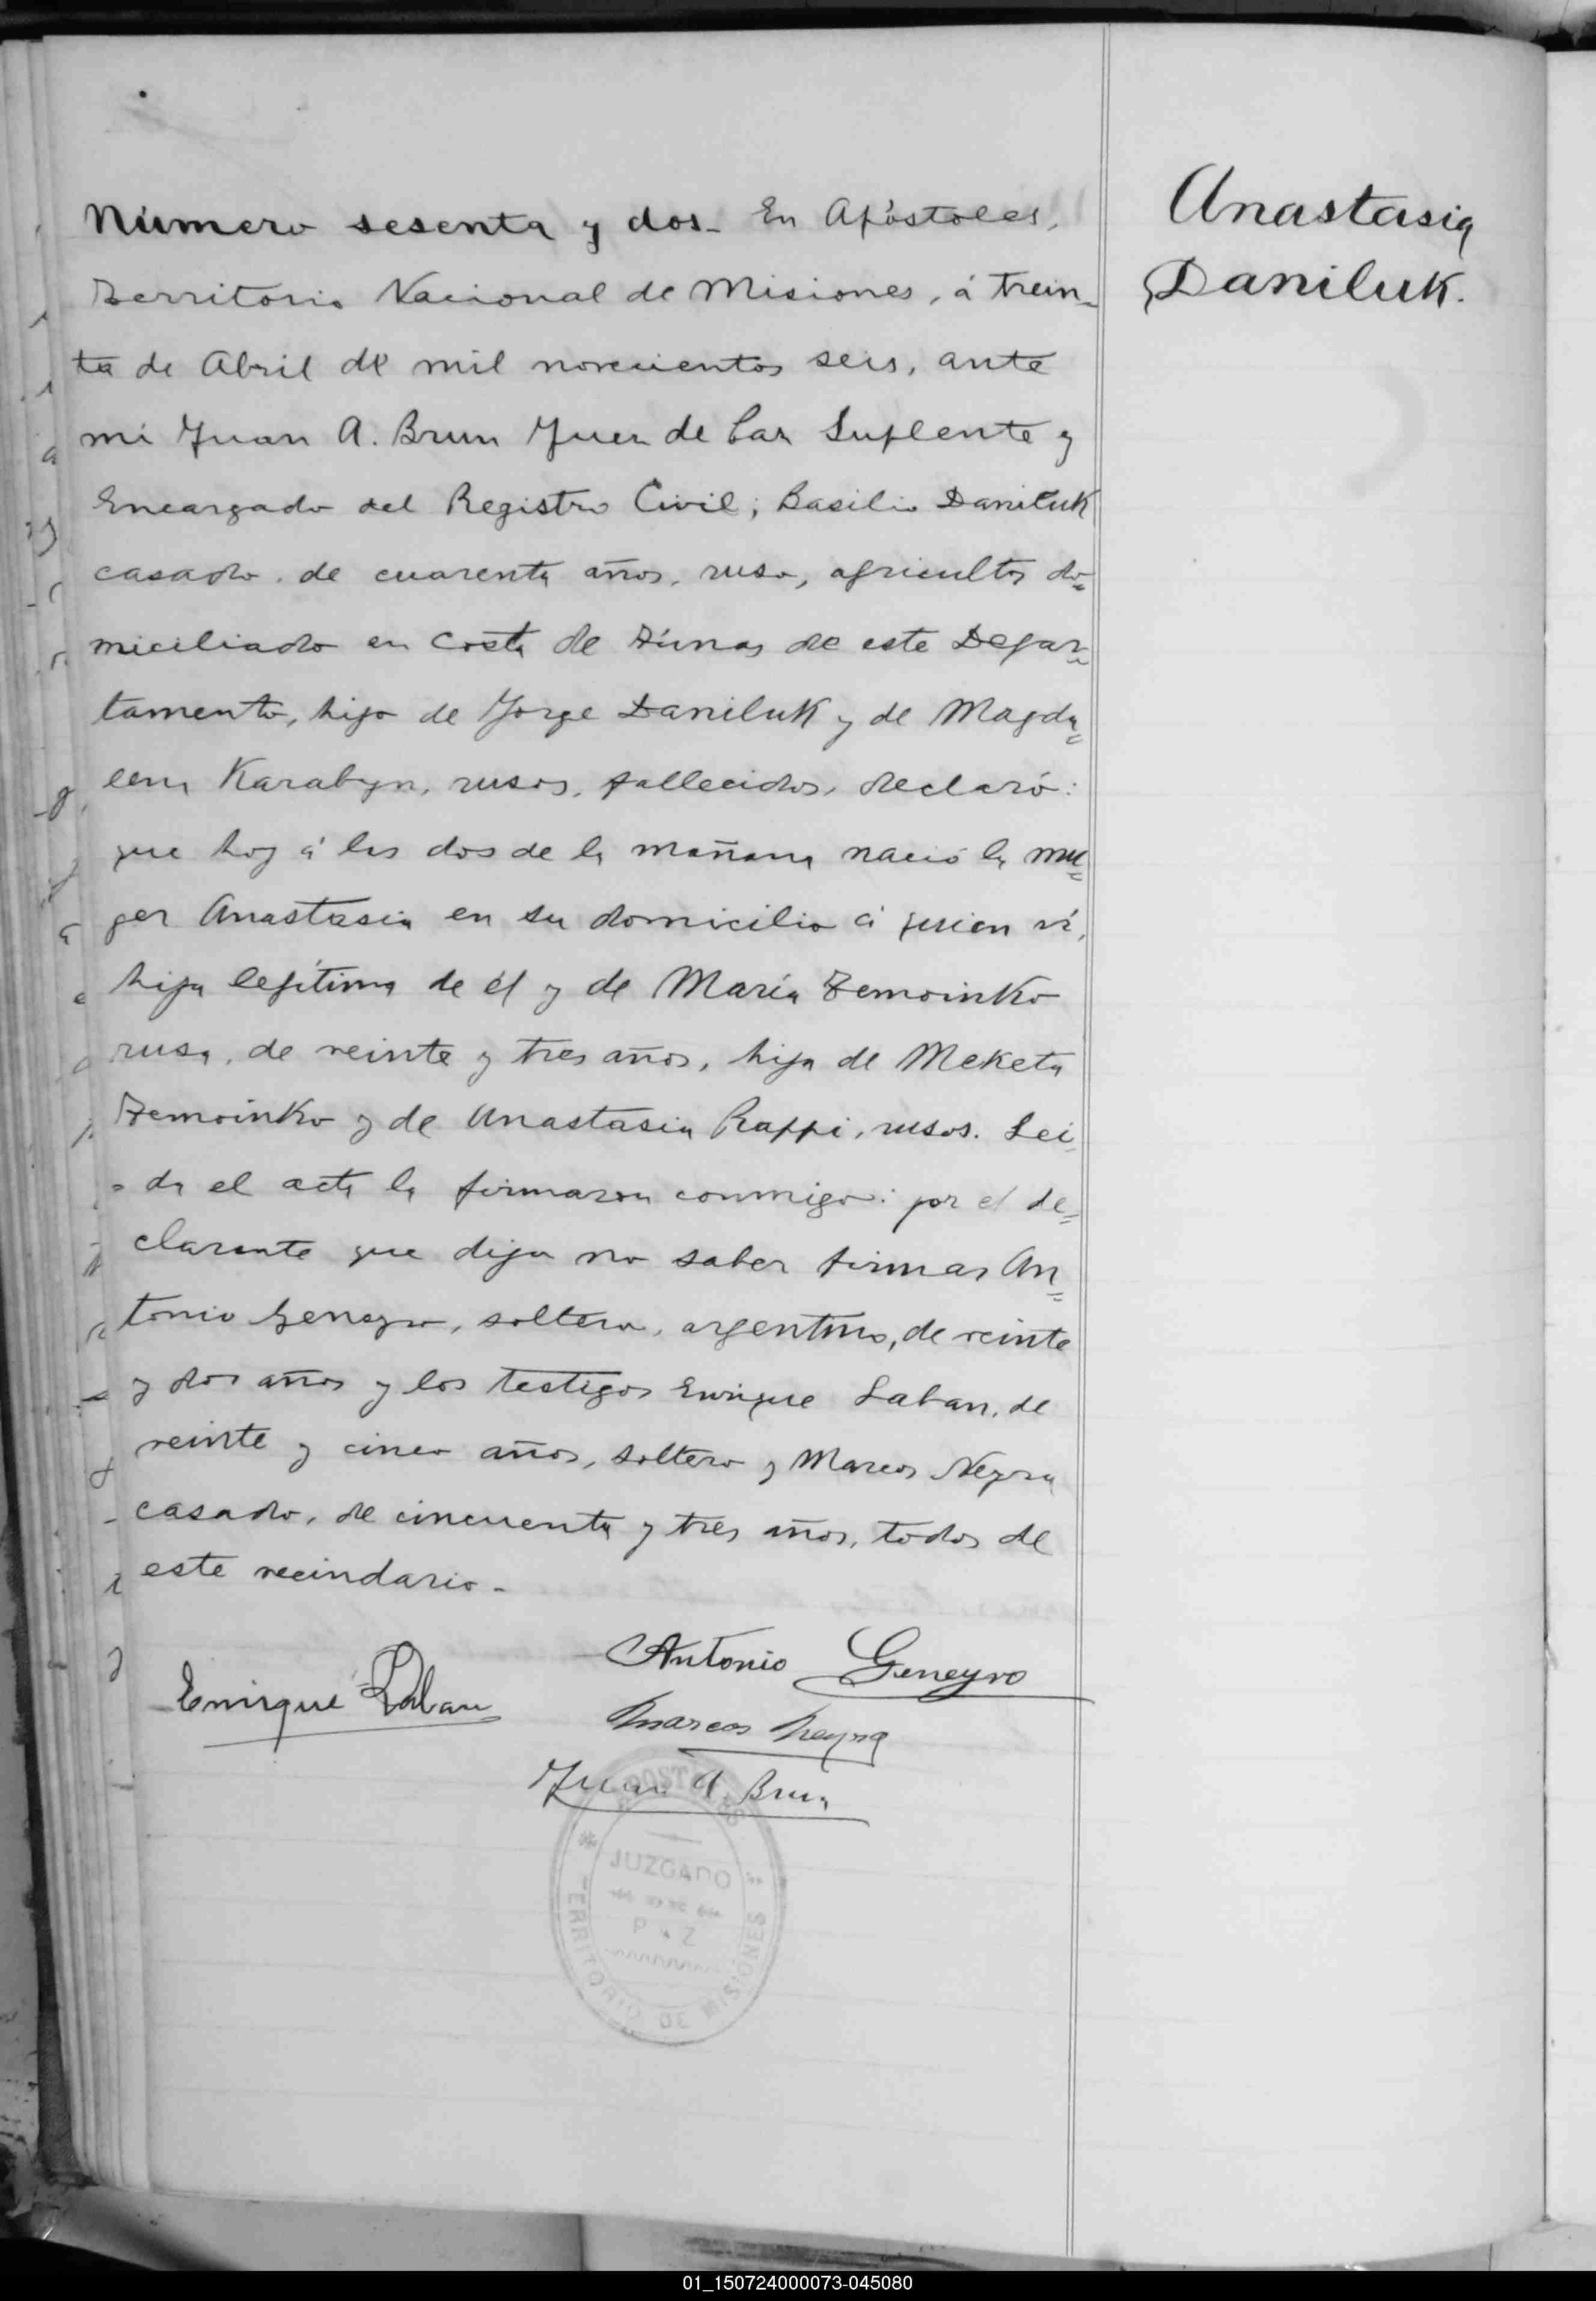 Anastasia
Daniluk.
Número sesenta y dos_ En Apóstoles,
Territorio Nacional de Misiones, á trein-
ta de Abril de mil novecientos seis, ante
mi Juan A. Brun Juez de Paz Suplente y
Encargado del Registro Civil; Basilio Daniluk
casado, de cuarenta años, ruso, agricultor do=
miciliado en Costa de Tunas de este Depar=
tamento, hijo de Jorge Daniluk y de Magda=
lena Karabyn, rusos, fallecidos, declaró:
que hoy á las dos de la mañana nació la mu=
ger Anastasia en su domicilio á quien ví,
hija legítima de él y de María Zemoinko
rusa, de veinte y tres años, hija de Meketa
Zemoinko y de Anastasia Rappi, rusos. Lei
=da el acta la firmaron conmigo: por el de=
clarante que dijo no saber firmar An=
tonio Geneyro, soltero, argentino, de veinte
y dos años y los testigos Enrique Laban, de
veinte y cinco años, soltero y Marcos Neyra
casado, de cincuenta y tres años, todos de
este vecindario-
Antonio Geneyro
Enrique Laban
Marcos Neyra
Juan A. Brun
APOSTOLES
JUZGADO
DE
PAZ
TERRITORIO DE MISIONES
01_150724000073-045080